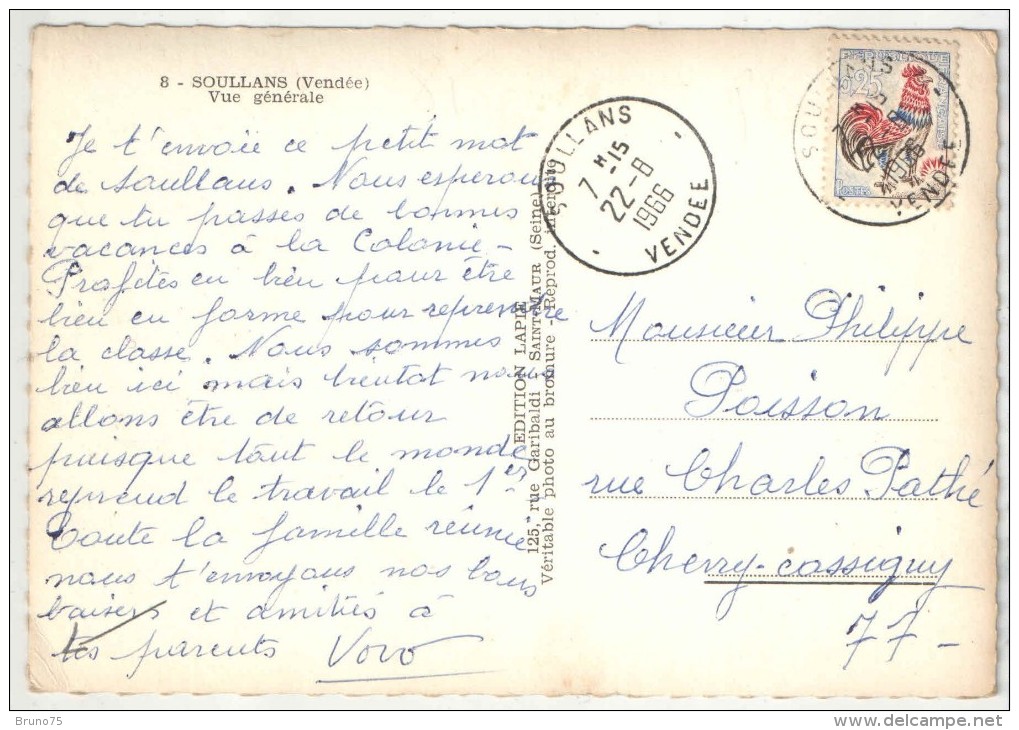 8 - SOULLANS (Vendée)
Vue générale
Je t'envoie ce petit mot
de Soullans. Nous esperons
que tu passes de bonnes
vacances à la Colonie -
Profites en bien pour être
bien en forme pour reprendre
la classe. Nous sommes
bien ici mais bientot nous
allons être de retour
puisque tout le monde
reprend le travail le 1er.
Toute la famille réunie
nous t'envoyons nos bons
baisers et amitiés à
tes parents Vovo
EDITION LAPIE
125, rue Garibaldi - SAINT-MAUR (Seine)
Véritable photo au bromure - Reprod. interdite
SOULLANS
7 H 15
22-8
1966
VENDEE
0,25
POSTES
SOULLANS
1966
VENDEE
Monsieur Philippe
Poisson
rue Charles Pathé
Cherry-cassiguy
77-
Bruno75